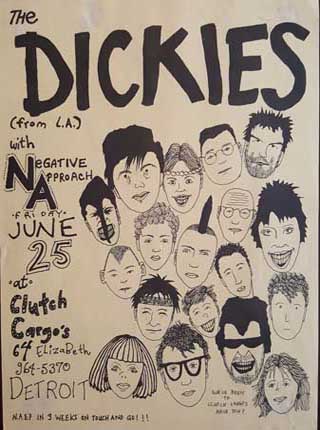 THE
DICKIES
(from L.A.)
with
NEGATIVE
APPROACH
·FRIDAY·
JUNE
25
·at·
Clutch
Cargo's
64 ElizaBeth
964-5370
DETROIT
N.A. E.P. IN 3 WEEKS ON TOUCH AND GO!!!